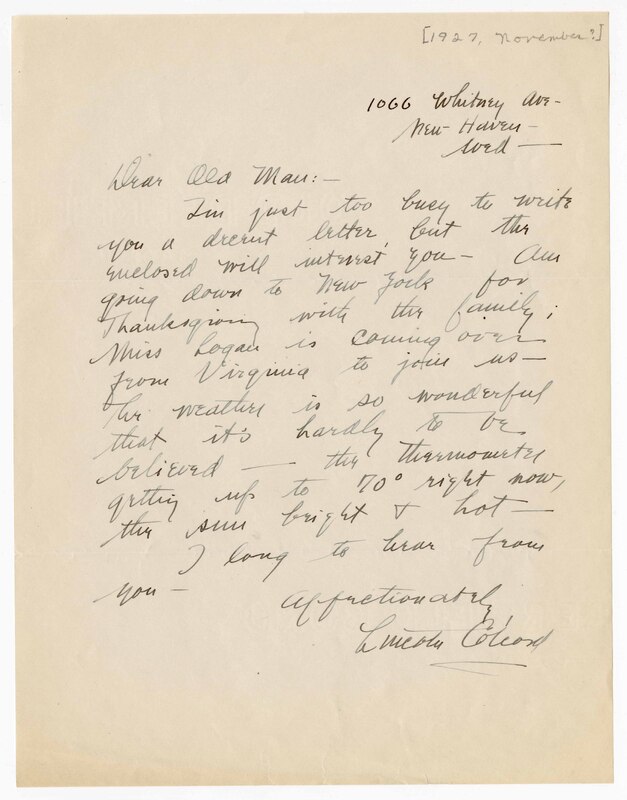 [1927, November?]
1066 Whitney Ave-
New Haven-
Wed —
Dear Old Man:-
I'm just too busy to write
you a decent letter, but the
enclosed will interest you - Am
going down to New York for
Thanksgiving with the family;
Miss Logan is coming over
from Virginia to join us -
The weather is so wonderful
that it's hardly to be
believed — the thermometer
getting up to 70° right now,
the sun bright & hot -
I long to hear from
you -
Affectionately,
Lincoln Colcord